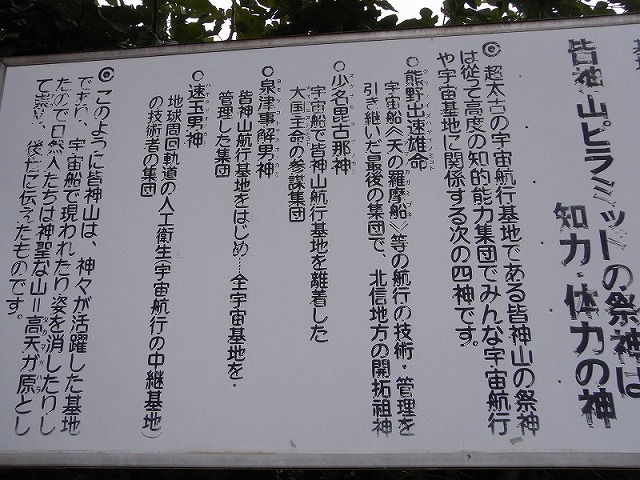 皆神山ピラミッドの祭神は
知力・体力の神
◎超太古の宇宙航行基地である皆神山の祭神
は従って高度の知的能力集団でみんな宇宙航行
や宇宙基地に関係する次の四神です。
○熊野出速雄命
宇宙船〈天の羅摩船〉等の航行の技術・管理を
引き継いだ最後の集団で、北信地方の開拓祖神
○少名毘古那神
宇宙船で皆神山航行基地を離着した
大国主命の参謀集団
○泉津事解男神
皆神山航行基地をはじめ…全宇宙基地を・
管理した集団
○速玉男神
地球周回軌道の人工衛生(宇宙航行の中継基地)
の技術者の集団
◎このように皆神山は、神々が活躍した基地
ですから、宇宙船で現われたり姿を消したりし
たので自然人たちは神聖な山=高天が原とし
て崇め、後世に伝えたものです。